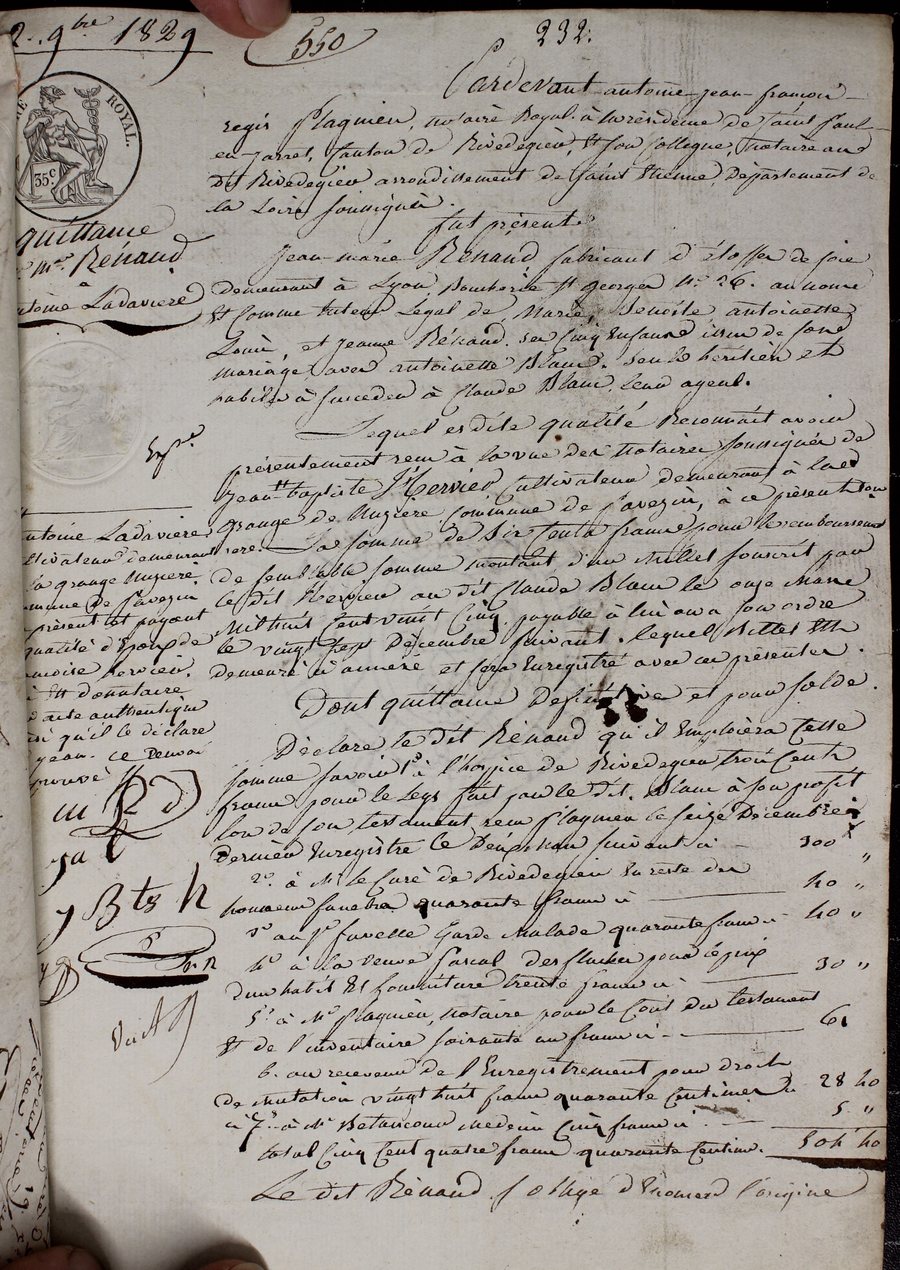 2. 9bre 1829
550
232.
ROYAL.
35c
quittance
Mie Rénaud
à
antoine Ladavière
Expé.
Pardevant antoine jean françois
regis flaquieu, notaire Royal à la résidence de saint Paul
en Jarret, Canton de Rivedegier, & son Collegue, notaire au
dit Rivedegier arrondissement de saint Etienne, département de
la Loire soussignés.
fut présent
Jean-marie Renaud fabricant d'étoffes de soie
demeurant à Lyon st georges No. 26. au nom
& Comme tuteur Légal de Marie, Benoite antoinette
Louis, et Jeanne Rénaud. ses Cinq Enfans issus de son
mariage avec antoinette Blanc. seuls heritiers et
habiles à succeder à Claude Blanc, leur ayeul.
Lequel es dite qualité Reconnait avoir
présentement reçu à la vue des notaires soussignés de
Jean-baptiste Hervier Cultivateur demeurant à la
Grange de Nuzière Commune de Cavezin, à ce présent
La somme de six Cents francs pour le remboursement
de semblable somme montant d'un Billet souscrit par
le dit Hervier au dit Claude Blanc le onze Mars
Mil huit Cent vingt Cinq. payable à lui ou à son ordre
le vingt sept Décembre suivant. lequel Billet Est
demeuré ci annexé et sera Enregistré avec ces présentes.
Dont quittance Definitive et pour solde.
Déclare le dit Rénaud qu'il Emploiera Cette
somme savoir 1o à l'hospice de Rivedegier trois Cents
francs pour le Legs fait par le dit. Blanc à son profit
lors de son testament reçu flaquieu le seize Décembre
dernier Enregistré le suivant ci 300 "
2o. à Mr le Curé de Rivedegier En reste des
honneurs funebres quarante francs ci 40 "
3o au Sr favelle Garde Malade quarante francs ci 40 "
4o à la veuve Pascal pour le prix
d'un habit & fourniture trente francs ci 30 "
5o à Me flaquieu, notaire pour le Cout du testament
& de l'inventaire soixante un francs ci 61
6. au receveur de l'Enregistrement pour droit
de Mutation vingt huit francs quarante Centimes 28 40
7o à Mr Betancour Medecin Cinq francs ci 5 "
total Cinq Cent quatre francs quarante Centimes. 504 40
Le dit Rénaud s'oblige d' l'origine
antoine Ladavière
cultivateur demeurant
la grange Nuzière
commune de Cavezin
présent et payant
qualité d'Epoux de
Hervier.
& donataire
acte authentique
ainsi qu'il le déclare
ce renvoi
approuvé